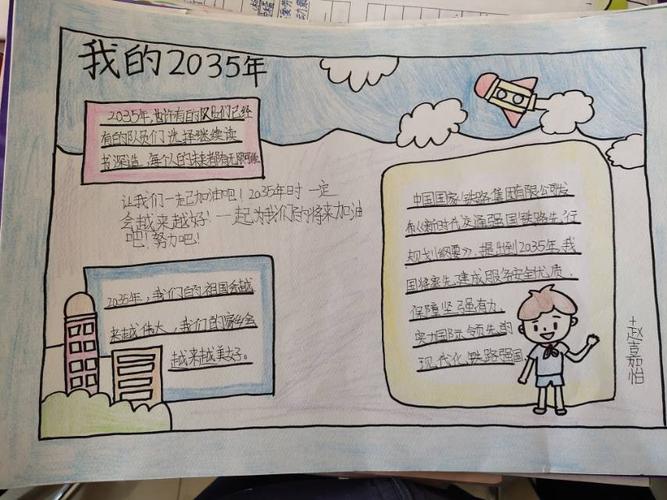 我的2035年
2035年,也许有的队员们已经
有的队员们选择继续读
书深造,每个人的未来都有无限可能
让我们一起加油吧!2035年时一定
会越来越好!一起为我们的将来加油
吧!努力吧!
2035年,我们的祖国会越
来越伟大,我们的家乡会
越来越美好。
中国国家铁路集团有限公司发
布《新时代交通强国铁路先行
规划纲要》,提出到2035年,我
国将率先建成服务安全优质,
保障坚强有力,
实力国际领先的
现代化铁路强国
赵嘉怡